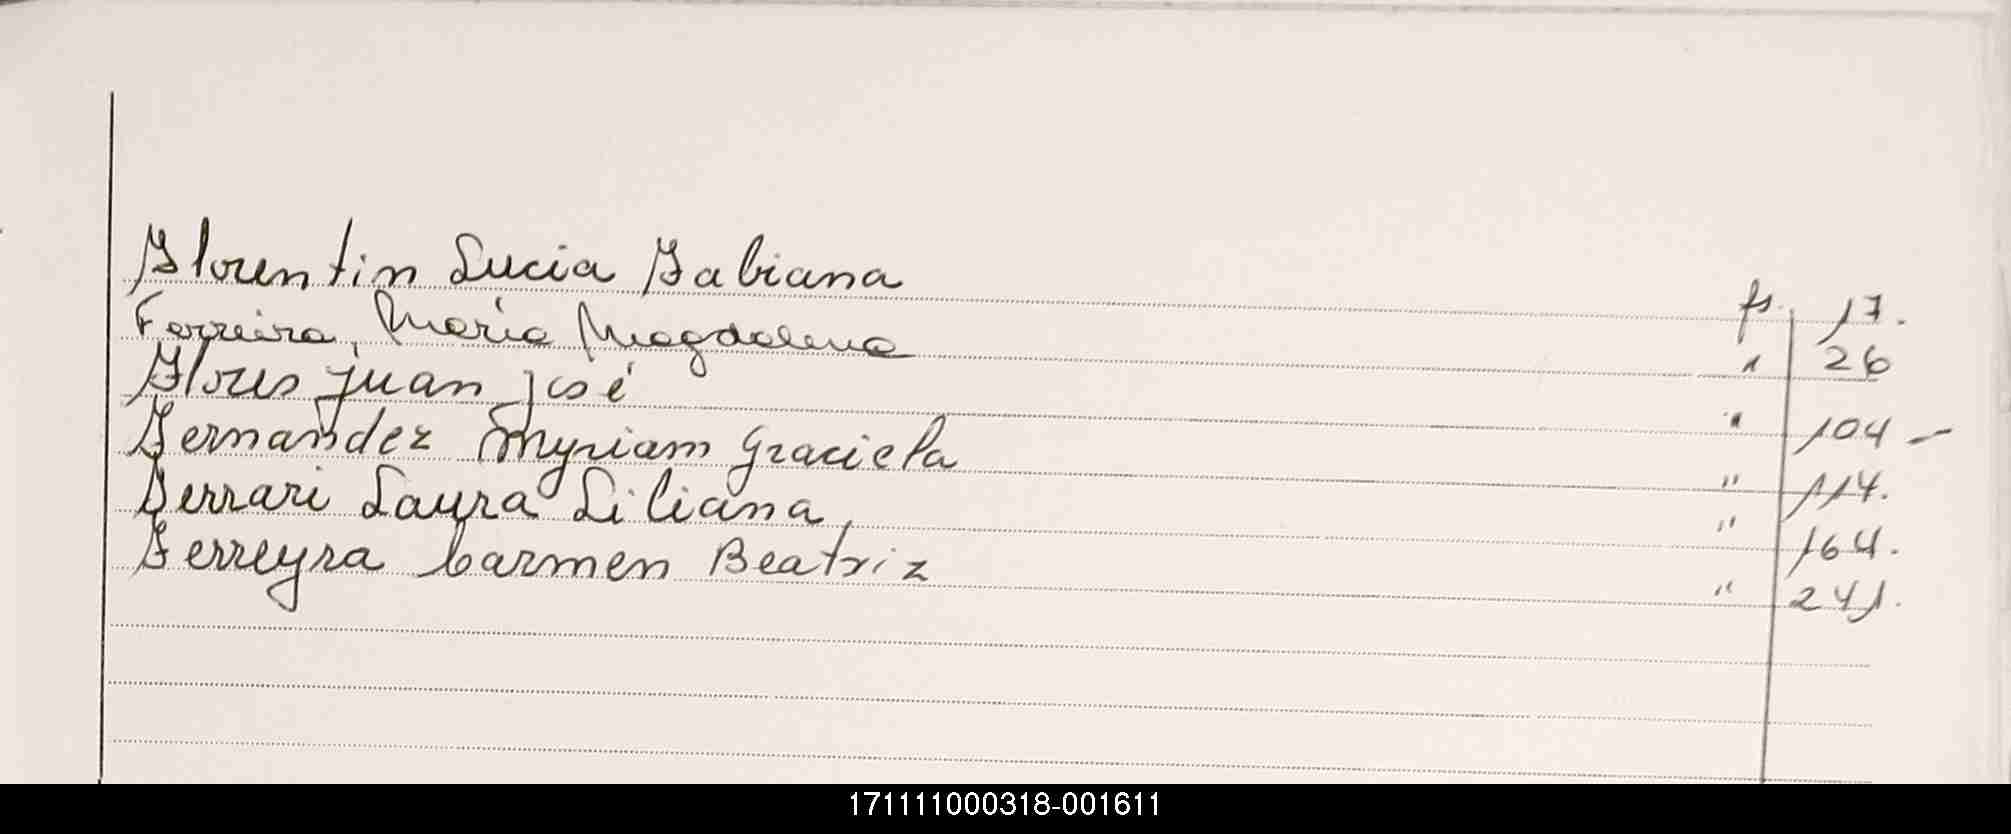 Florentin Lucia Fabiana fs. 17.
Ferreira, Maria Magdalena " 26
Flores Juan José " 104 –
Fernandez Myriam Graciela " 114.
Ferrari Laura Liliana " 164.
Ferreyra Carmen Beatriz " 241.
171111000318-001611